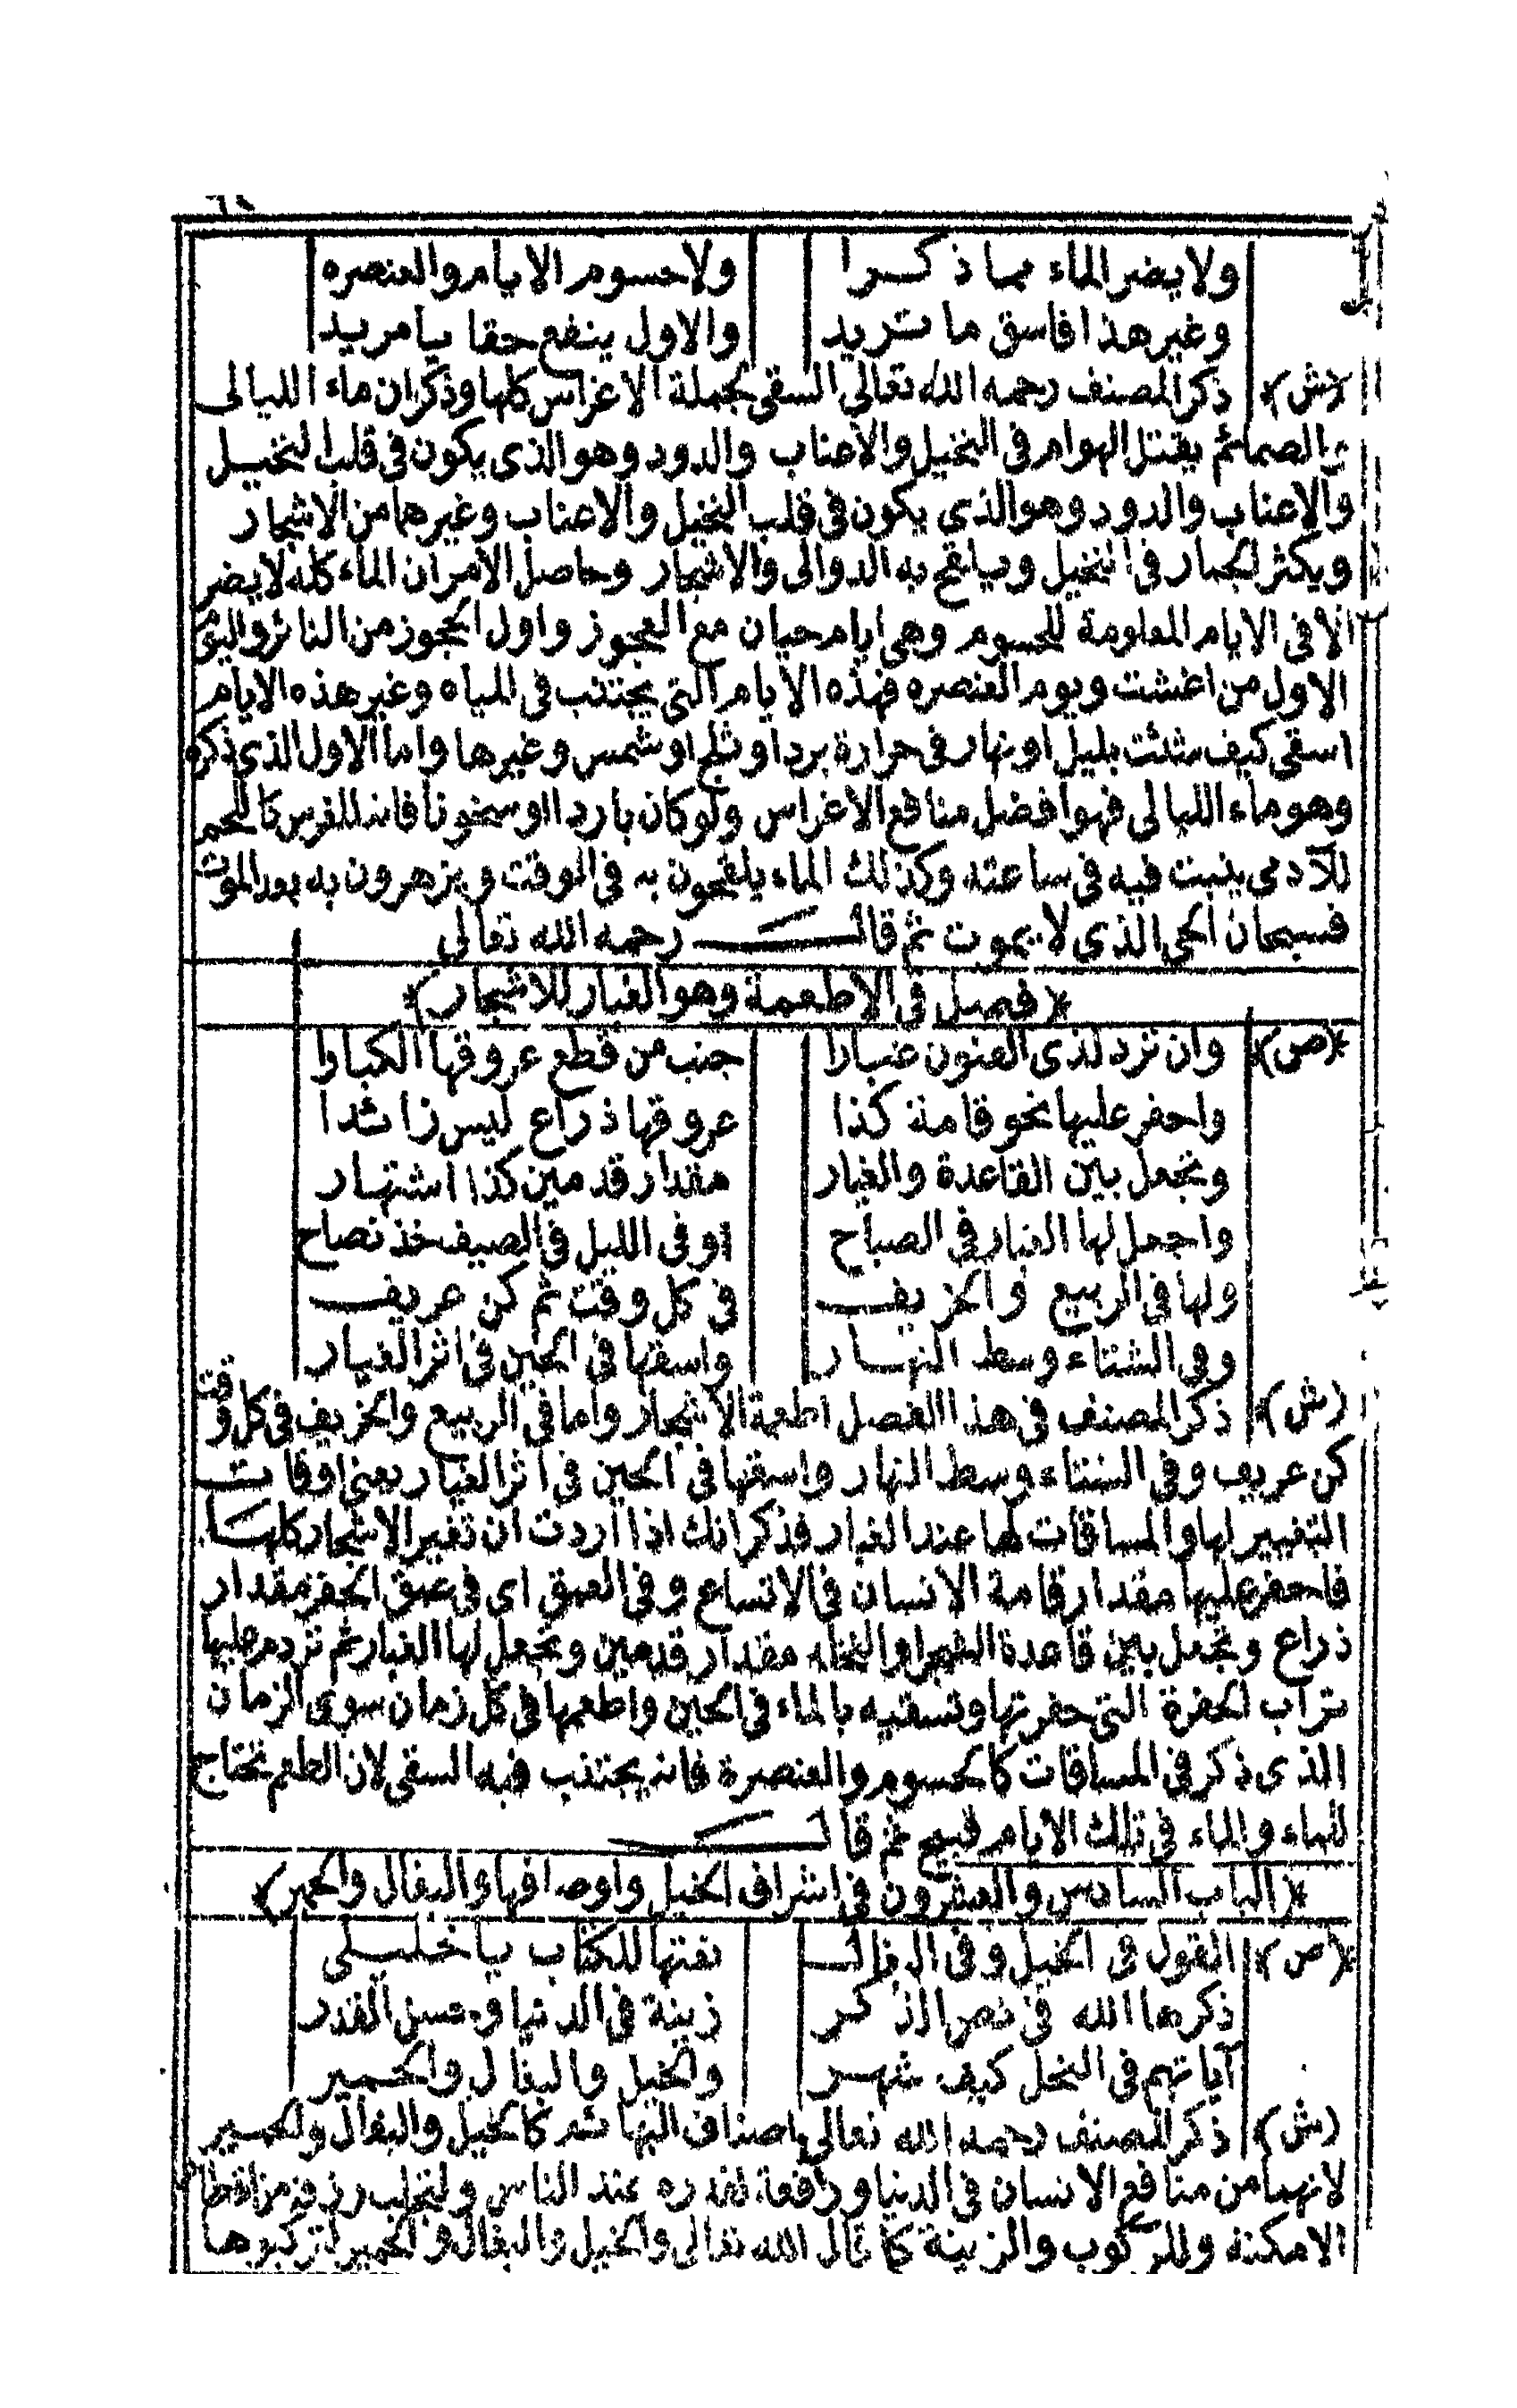 ولا يضر الماء مما ذكرا ولا حسوم الايام والعنصره
وغير هذا فاسق ما تريد والاول ينفع حقا يا مريد
(ش) ذكر المصنف رحمه الله تعالى السقى لجملة الاغراس كلها وذكر ان ماء الليالى
والصمائم يقتل الهوام فى النخيل والاعناب والدود وهو الذى يكون فى قلب النخيل
والاعناب والدود وهو الذى يكون فى قلب النخيل والاعناب وغيرهما من الاشجار
ويكثر الجمار فى النخيل ويلقح به الدوالى والاشجار وحاصل الامر ان الماء كله لا يضر
الا فى الايام المعلومة للحسوم وهى ايام حيان مع العجوز واول العجوز من الناثر واليوم
الاول من اغشت ويوم العنصره فهذه الايام التى يجتنب فى المياه وغير هذه الايام
اسقى كيف شئت بليل او نهار فى حرارة برد او ثلج او شمس وغيرها واما الاول الذى ذكره
وهو ماء الليالى فهو افضل منافع الاغراس ولو كان باردا او سخونا فانه للغرس كاللحم
للآدمى ينبت فيه فى ساعته وكذلك الماء يلقحون به فى الوقت ويزهرون به بعد الموت
فسبحان الحى الذى لا يموت ثم قال رحمه الله تعالى
(فصل فى الاطعمة وهو الغبار للاشجار)
(ص) وان ترد لذى الغنون غبارا جنب من قطع عروقها الكبارا
واحفر عليها نحو قامة كذا عروقها ذراع ليس زائدا
وتجعل بين القاعدة والغبار مقدار قدمين كذا اشتهار
واجعل لها الغبار فى الصباح او فى الليل فى الصيف خذ نصاح
ولها فى الربيع والخريف فى كل وقت ثم كن عريف
وفى الشتاء وسط النهار واسقها فى الحين فى اثر الغبار
(ش) ذكر المصنف فى هذا الفصل اطعمة الاشجار واما فى الربيع والخريف فى كل وقت
كن عريف وفى الشتاء وسط النهار واسقها فى الحين فى اثر الغبار يعنى اوقات
التغبير لها والمساقات لها عند الغبار فذكر انك اذا اردت ان تغبر الاشجار كلها
فاحفر عليها مقدار قامة الانسان فى الاتساع وفى العمق اى فى عمق الحفر مقدار
ذراع وتجعل بين قاعدة الشجر او النخله مقدار قدمين وتجعل لها الغبار ثم تردم عليها
تراب الحفرة التى حفرتها وتسقيه بالماء فى الحين واطعمها فى كل زمان سوى الزمان
الذى ذكر فى المساقات كالحسوم والعنصرة فانه يجتنب فيه السقى لان الطعم تحتاج
للماء والماء فى تلك الايام قبيح ثم قال
(الباب السادس والعشرون فى اشراف الخيل واوصافها والبغال والحمير)
(ص) القول فى الخيل وفى البغال نعتها للكتاب يا خليلى
ذكرها الله فى نص الذكر زينة فى الدنيا وحسن القدر
آياتهم فى النحل كيف شهر والخيل والبغال والحمير
(ش) ذكر المصنف رحمه الله تعالى اصناف البهائم كالخيل والبغال والحمير
لانهما من منافع الانسان فى الدنيا ورافعة لقدره عند الناس ولتجلب رزقه من اقطار
الامكنة وللركوب والزينة كما قال الله تعالى والخيل والبغال والحمير لتركبوها